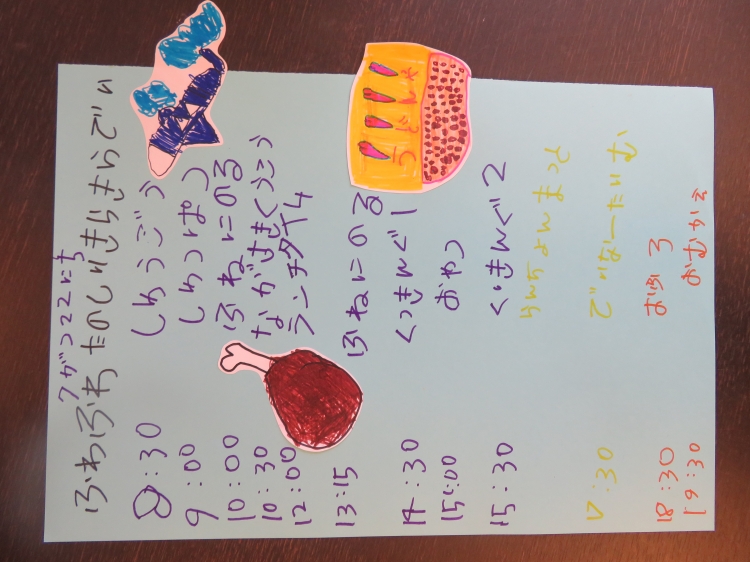 7がつ22にち
ふわふわ たのしいきらきらでい
8:30 しゅうごう
9:00 しゅっぱつ
10:00 ふねにのる
10:30 ながさきくうこう
12:00 ランチタイム
13:15 ふねにのる
14:30 くっきんぐ1
15:00 おやつ
15:30 くっきんぐ2
17:30 でぃなーたいむ
18:30 おふろ
19:30 おむかえ